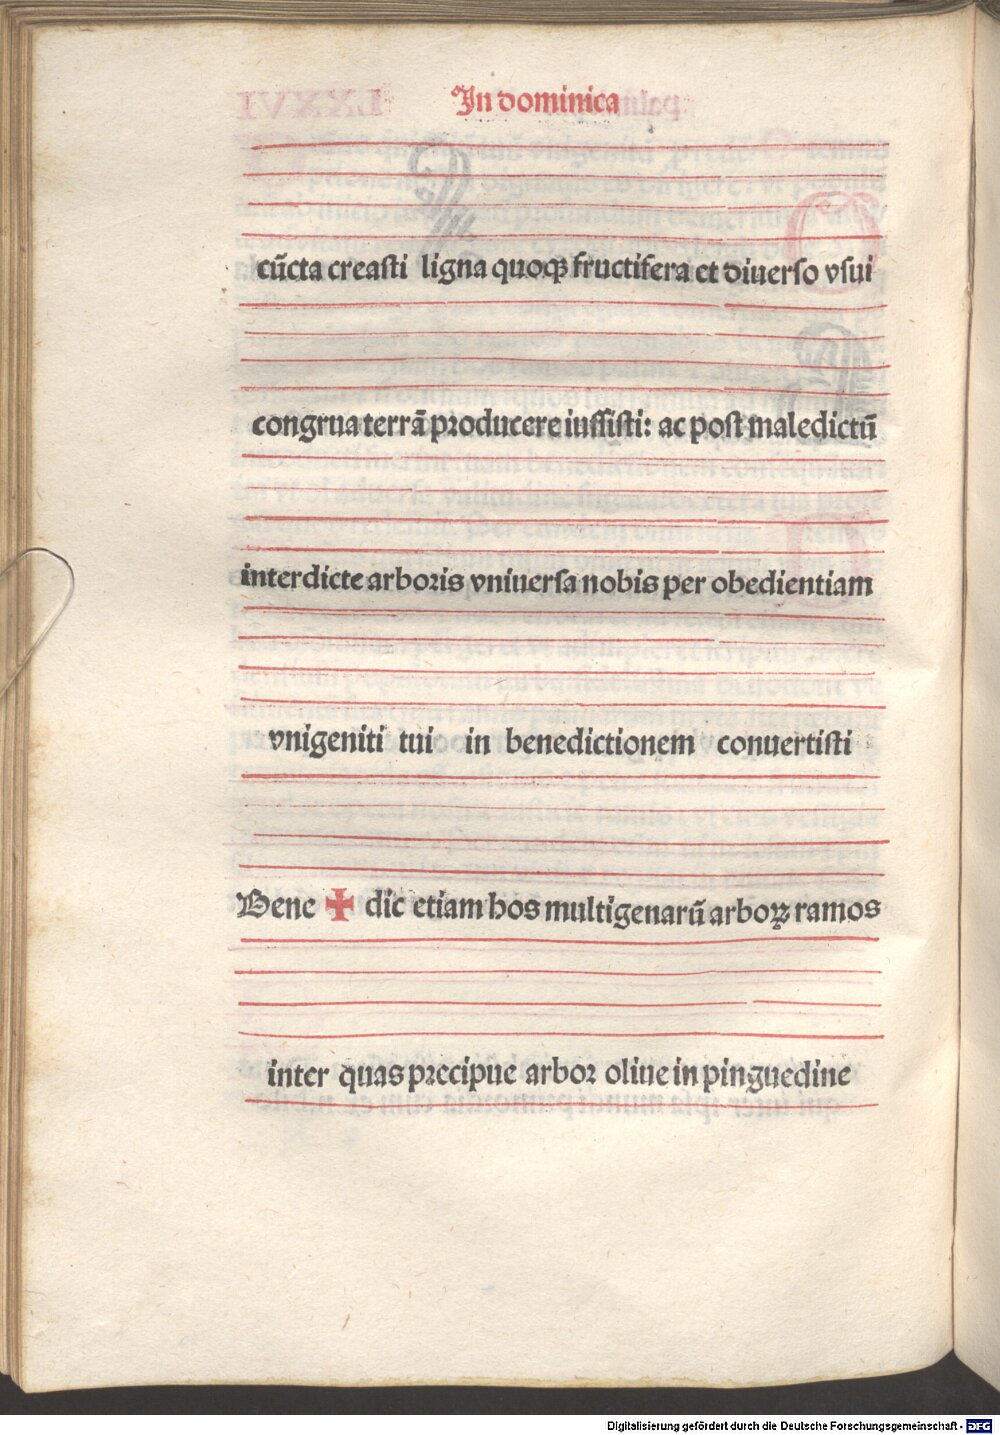 In dominica
cūcta creasti ligna quoqꝫ fructifera et diuerso vsui
congrua terrā producere iussisti: ac post maledictū
interdicte arboris vniuersa nobis per obedientiam
vnigeniti tui in benedictionem conuertisti
Bene ✠ dic etiam hos multigenarū arboꝝ ramos
inter quas precipue arbor oliue in pinguedine
Digitalisierung gefördert durch die Deutsche Forschungsgemeinschaft - DFG